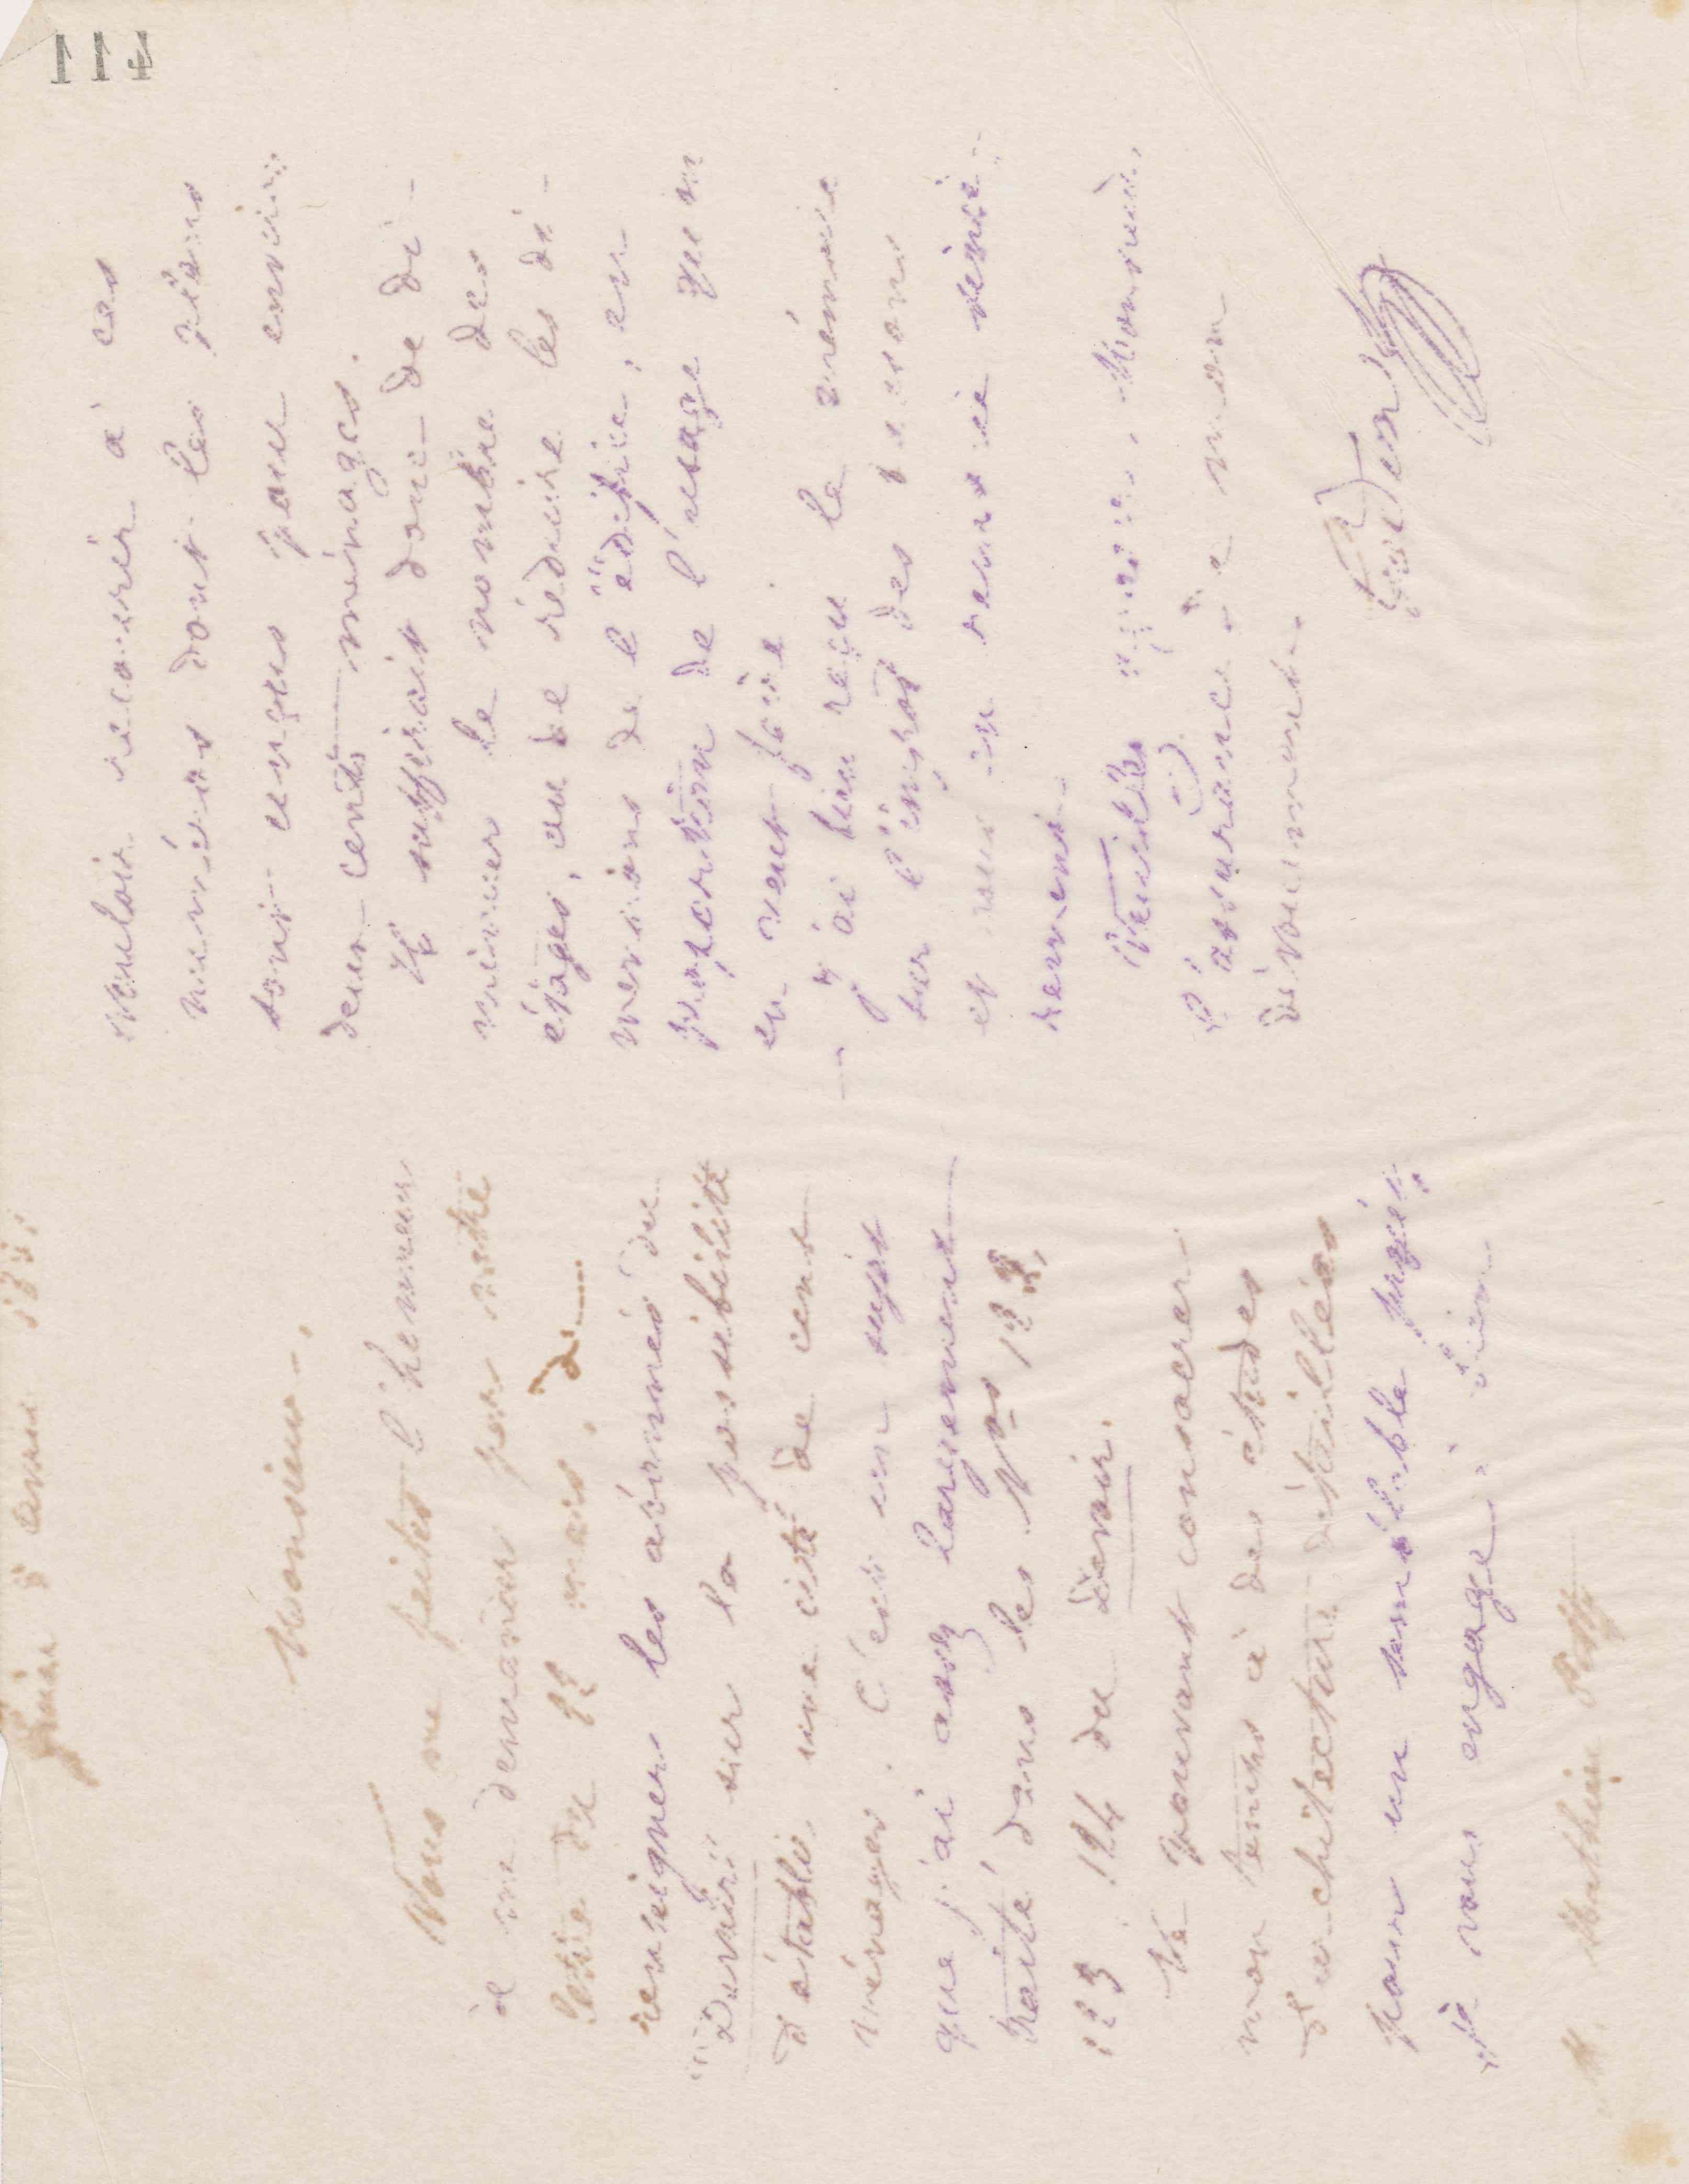 114
Guise 5 avril
Monsieur,
Vous me faites l'honneur
de me demander par votre
lettre du 22 mars, de
renseigner les abonnés du
"Devoir" sur la possibilité
d'établir une cité de cent
ménages. C'est un sujet
que j'ai assez largement
traité dans les Nos 122,
123, 124 du Devoir.
Ne pouvant consacrer
mon temps à des études
d'architecture détaillées
pour un semblable projet
je vous engage à bien
M. Mathieu
vouloir recourir à ces
numéros dont les plans
sont conçus pour environ
deux cents ménages.
Il suffirait donc de di-
minuer le nombre des
étages, ou de réduire les di-
mensions de l'édifice, en
proportion de l'usage qu'on
en veut faire.
J'ai bien reçu la prémoie
sur l'impôt des boissons
et vous en remercie sincè-
rement.
Veuillez agréer, Monsieur,
l'assurance de mon
dévouement.
Godin